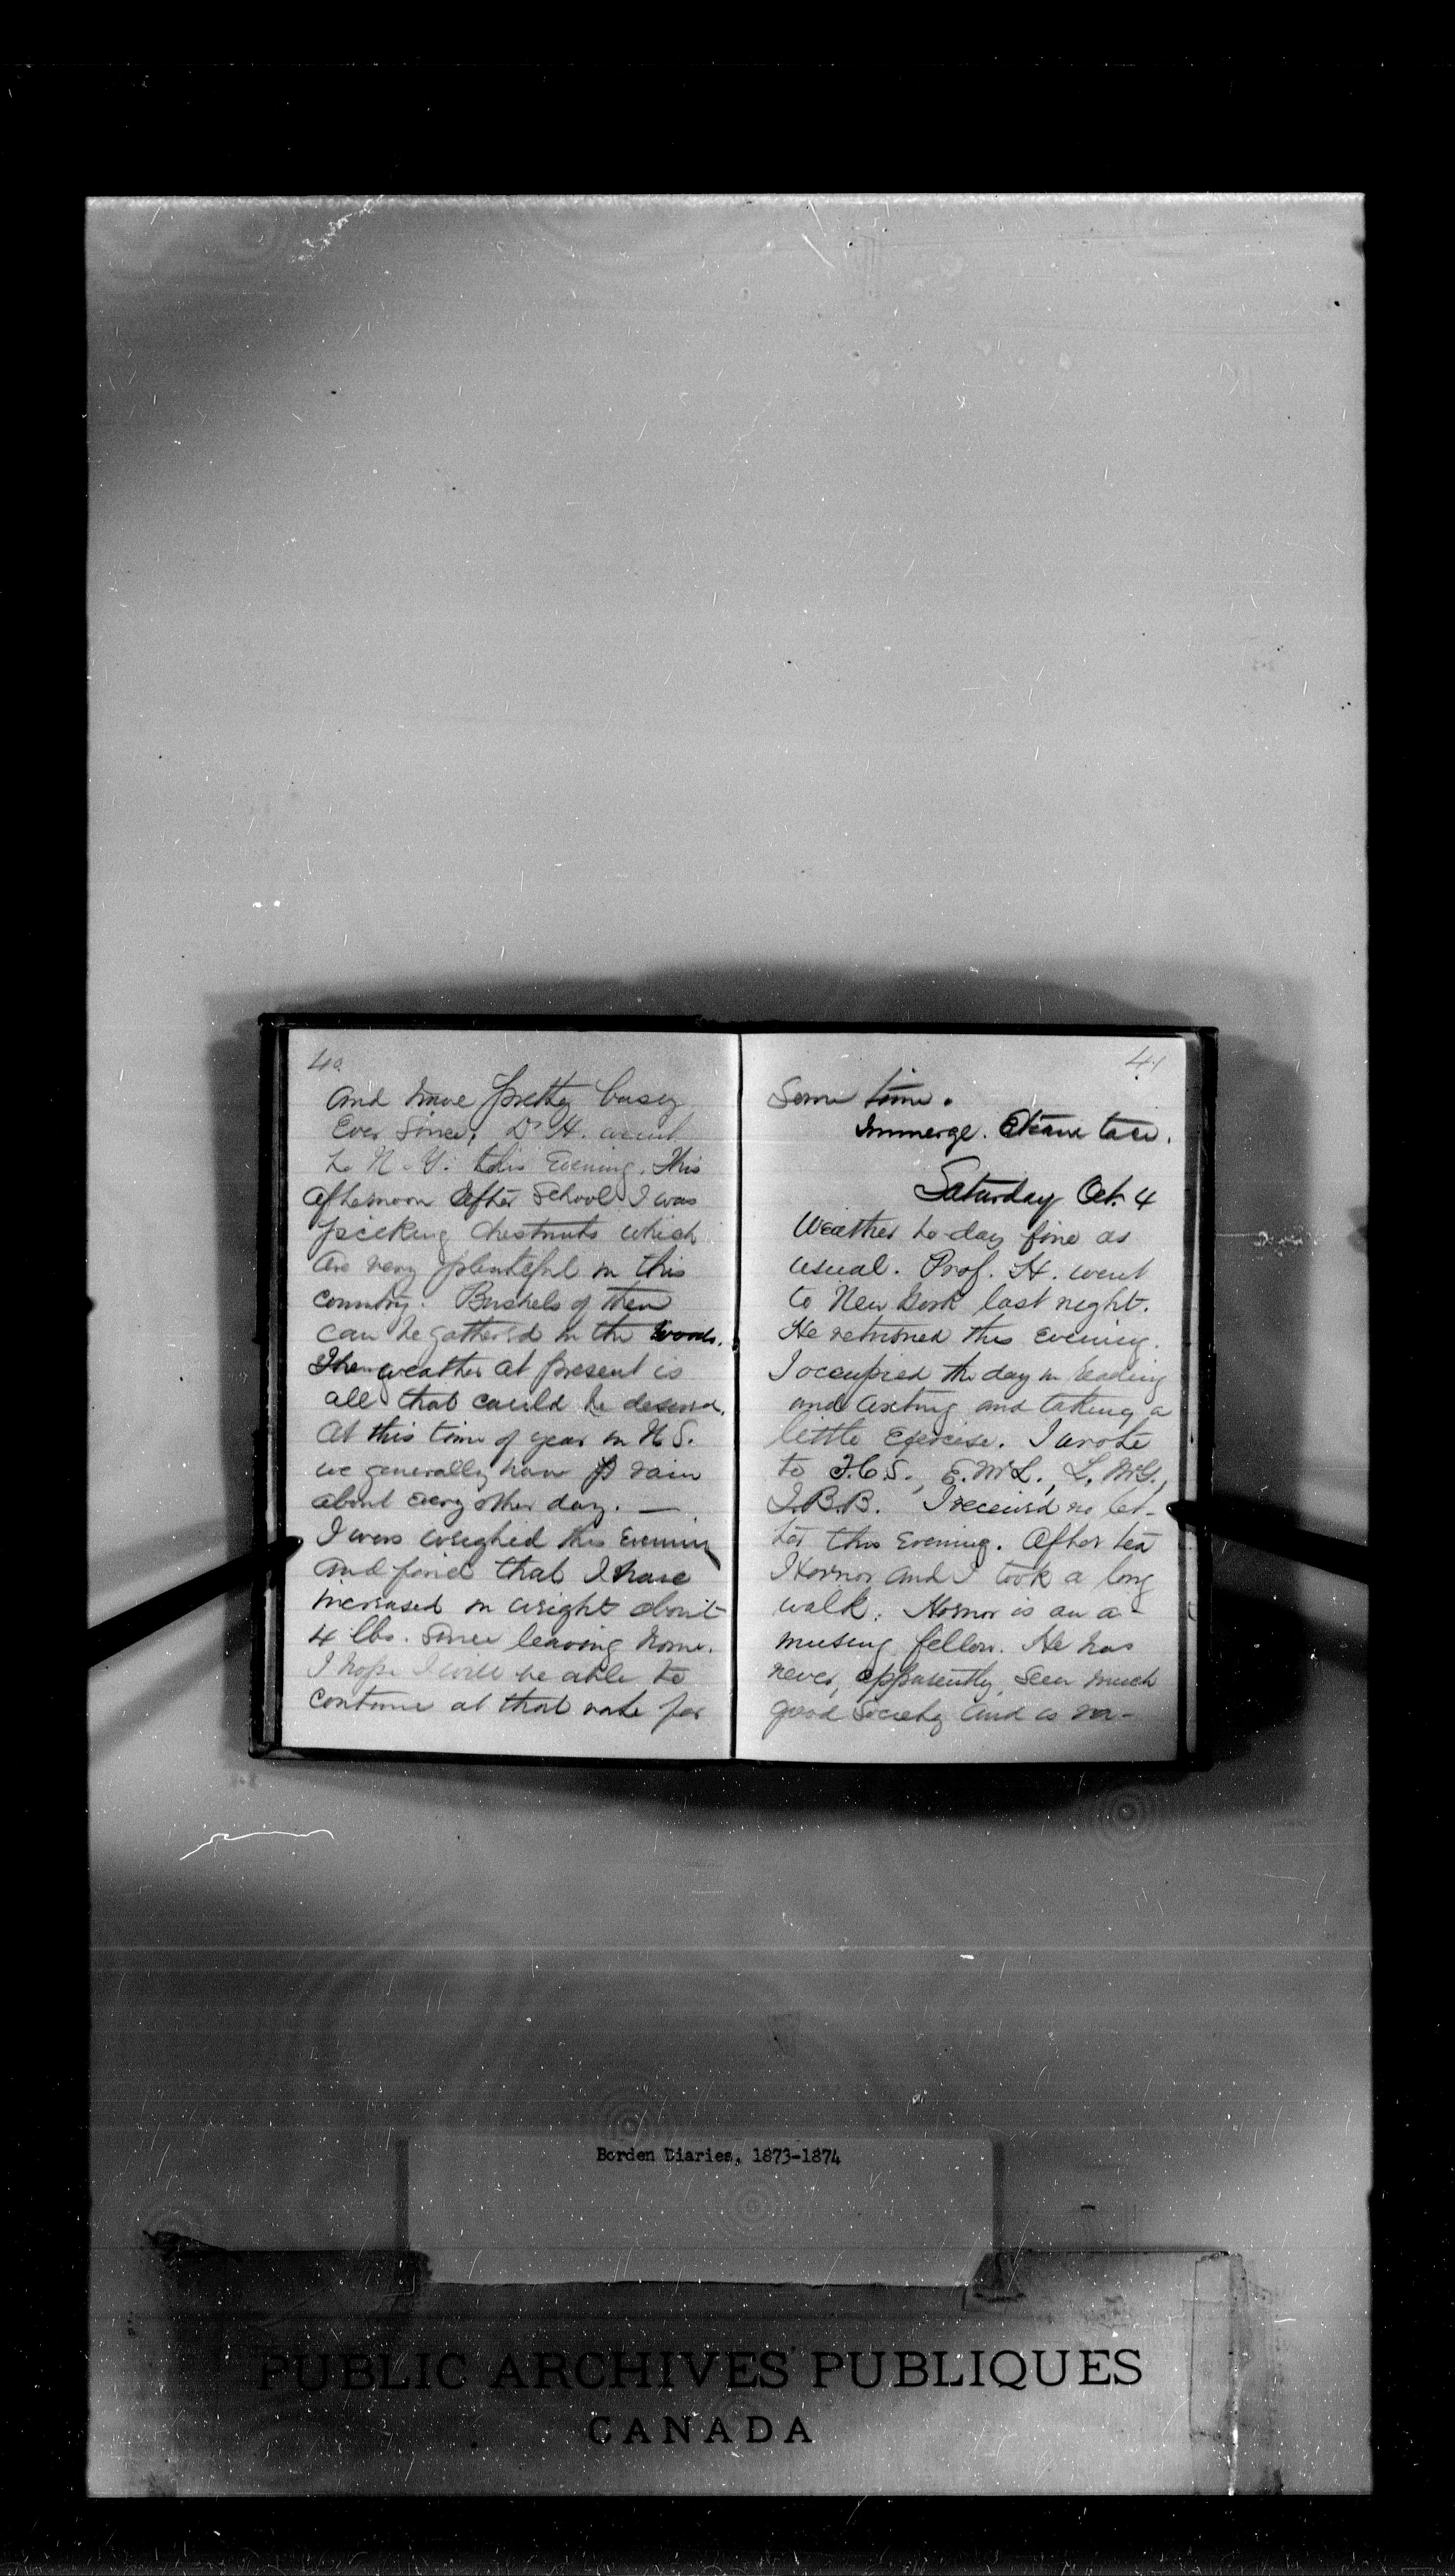 40
and have pretty busy
ever since. Dr H. went
to N.Y. this evening. This
afternoon after school I was
picking chestnuts which
are very plentiful in this
country. Bushels of them
can be gathered in the woods.
The weather at present is
all that could be desired.
At this time of year in N.S.
we generally have rain
about every other day. —
I was weighed this evening
and find that I have
increased in weight about
4 lbs. since leaving home.
I hope I will be able to
continue at that rate for
41
some time.
Immerge.
Saturday Oct. 4
Weather to-day fine as
usual. Prof. H. went
to New York last night.
He returned this evening.
I occupied the day in reading
and and taking a
little exercise. I wrote
to J.C.S., E.McL., L.McG.,
I.B.B. I received no let-
ter this evening. After tea
Hornor and I took a long
walk. Hornor is an a-
musing fellow. He has
never, apparently, seen much
good society and is
Borden Diaries, 1873-1874
PUBLIC ARCHIVES PUBLIQUES
CANADA